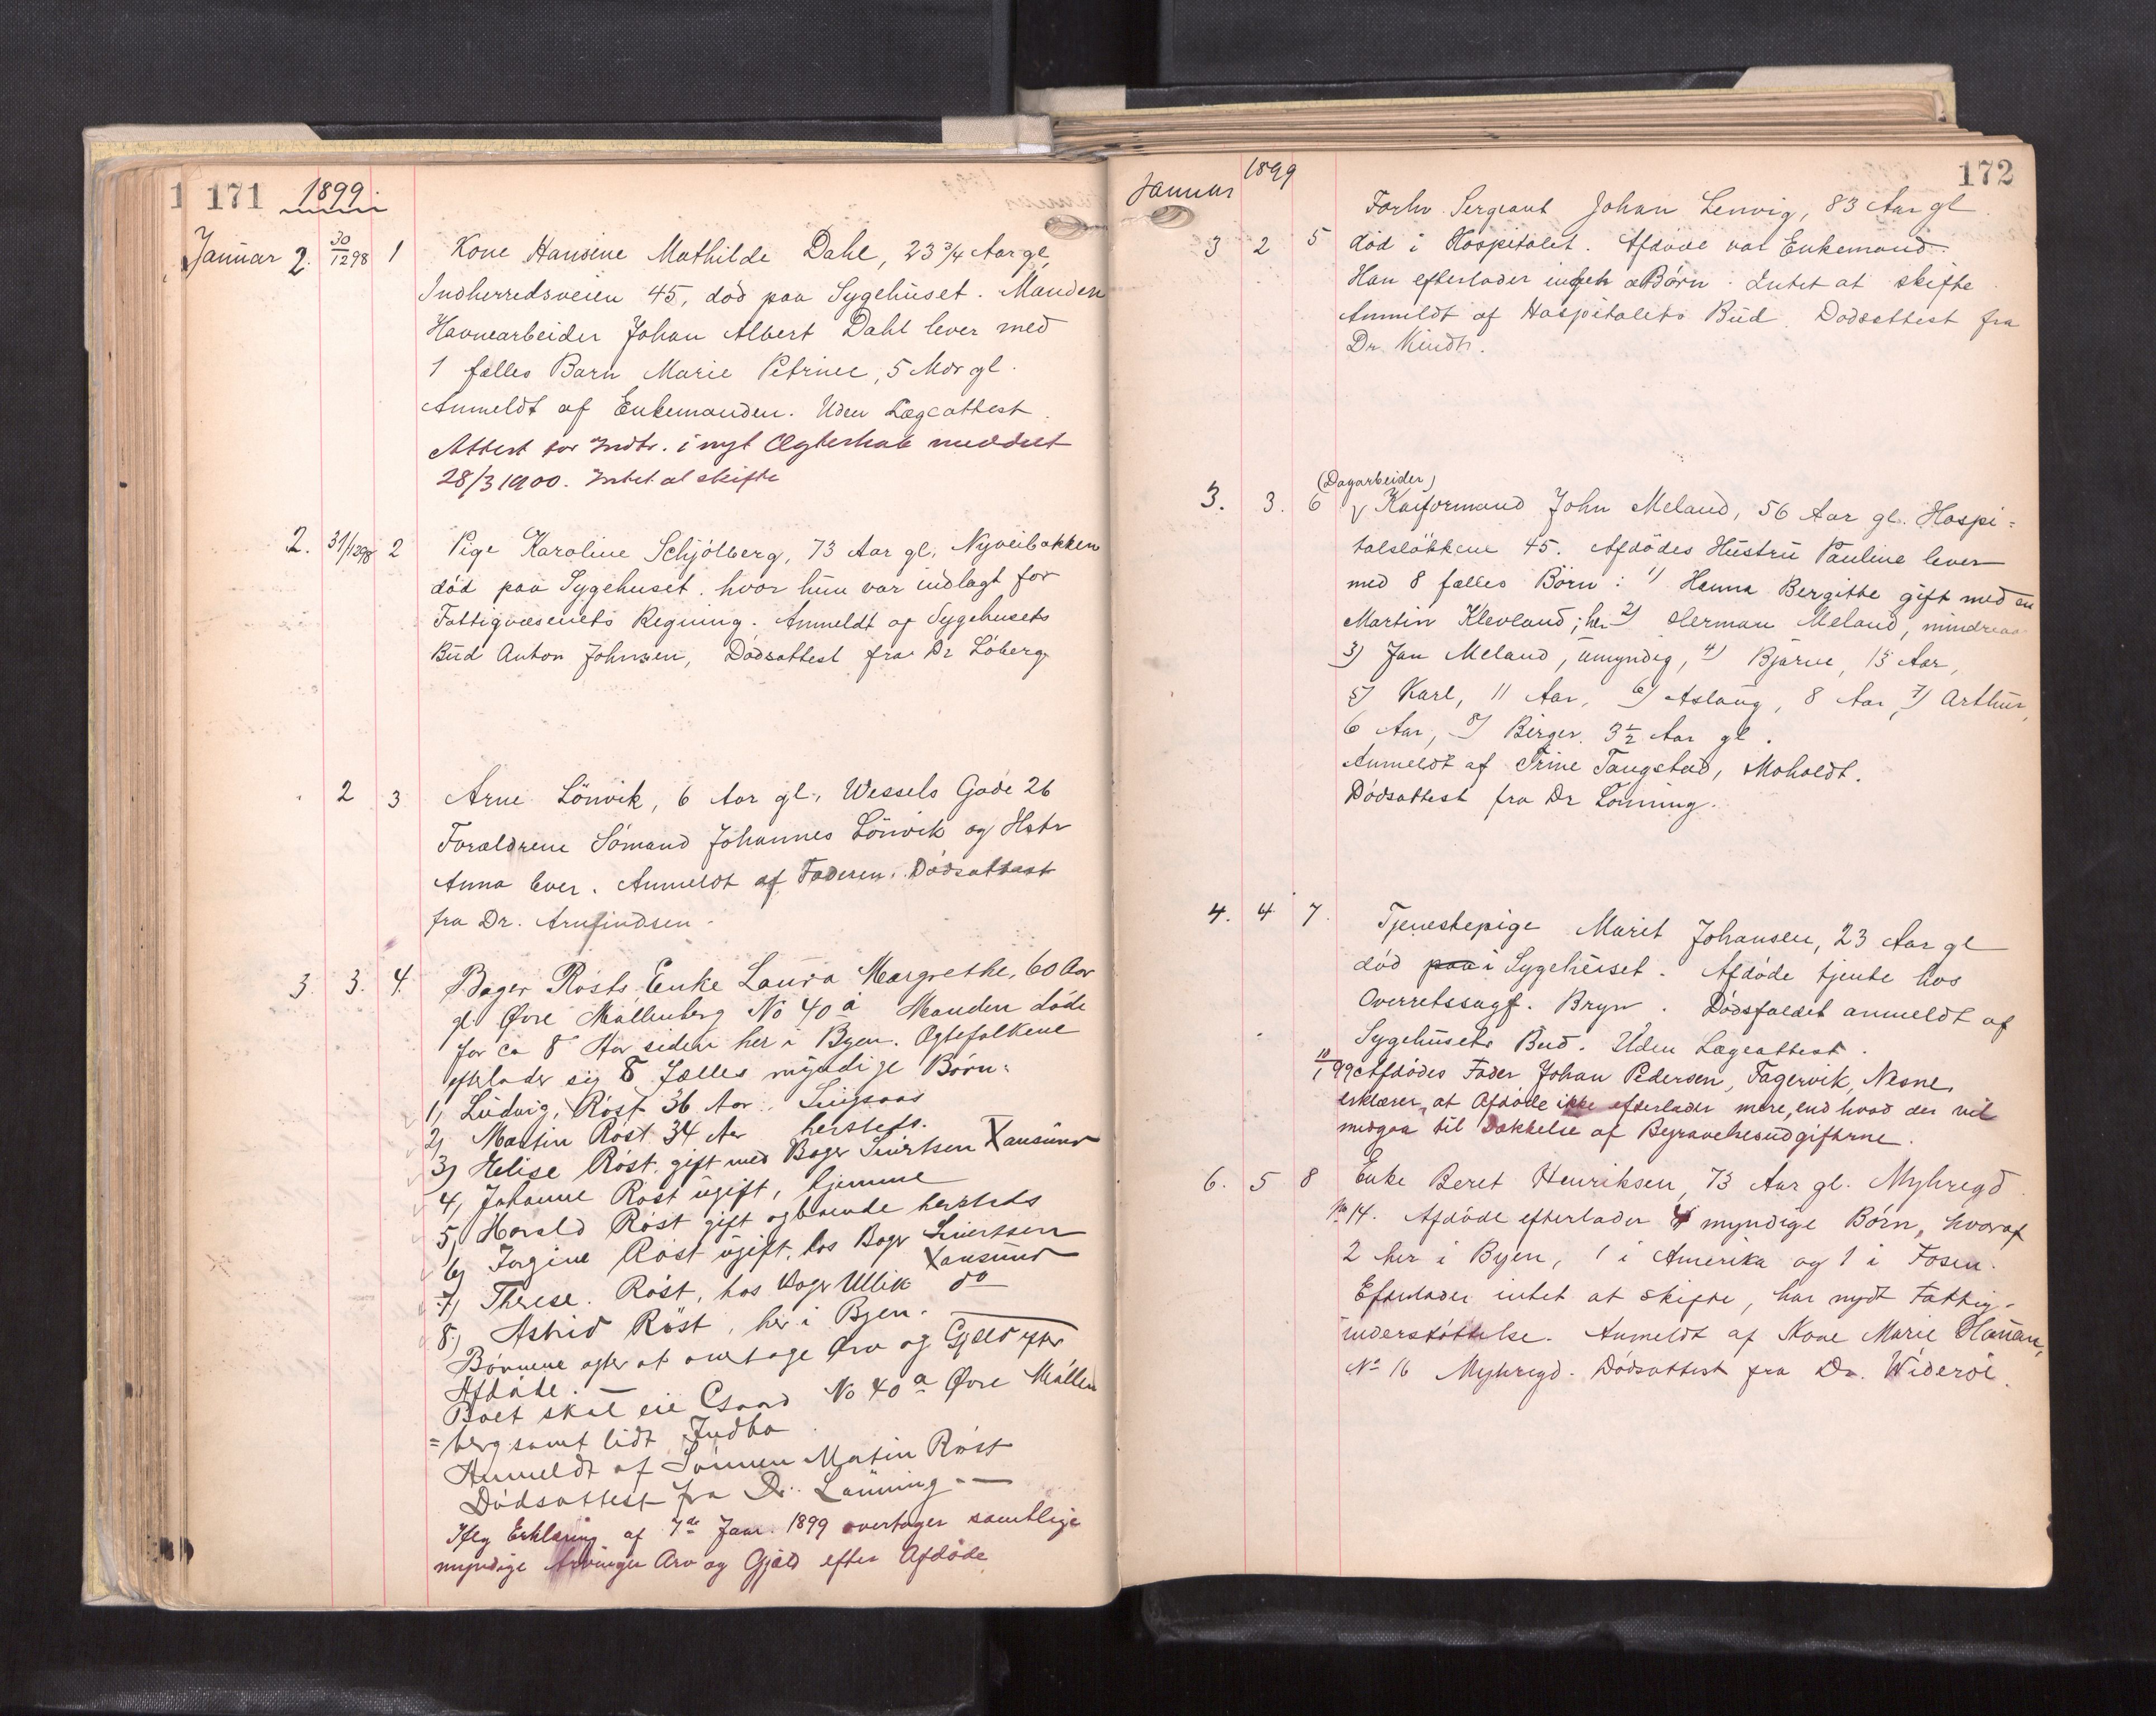 171 1899.
Januar 2. 30/12 98 1 Kone Hansine Mathilde Dahl, 23 3/4 Aar gl,
Indherredsveien 45, död paa Sygehuset. Manden
Havnearbeider Johan Albert Dahl lever med
1 fælles Barn Marie Petrine, 5 Mdr gl.
Anmeldt af Enkemanden. Uden Lægeattest.
Attest for Indtr. i nyt Ægteskab meddelt
28/3 1900. Intet at skifte
2. 31/12 98 2 Pige Karoline Schjölberg, 73 Aar gl, Nyveibakken
död paa Sygehuset. hvor hun var indlagt for
Fattigvæsenets Regning. Anmeldt af Sygehusets
Bud Anton Johnsen, Dödsattest fra Dr Löberg
2 3 Arne Lönvik, 6 Aar gl, Wessels Gade 26
Forældrene Sömand Johannes Lönvik og Hstr
Anna lever. Anmeldt af Faderen. Dödsattest
fra Dr. Arnfindsen.
3. 3. 4. Bager Rösts Enke Laura Margrethe, 60 Aar
gl. Øvre Möllenberg No 40 a Manden döde
for ca 8 Aar siden her i Byen. Ægtefolkene
efterlader sig 8 fælles myndige Börn:
1, Ludvig, Röst 36 Aar. Singsaas
2, Martin Röst. 34 Aar hersteds.
3, Helise Röst. gift med Bager Sivertsen Xansund
4, Johanne Röst ugift, hjemme
5, Harald Röst gift og boende hersteds
6, Jørgine Röst ugift. hos Bager Sivertsen Xansund
7, Therese. Röst, hos Bager Ullik do
8.) Astrid Röst, her i Byen.
Börnene agter at overtage Arv og Gjæld efter
Afdöde. —
Boet skal eie Gaard No 40 a Øvre Möllen
=berg samt lidt Indbo
Anmeldt af Sönnen Martin Röst
Dödsattest fra Dr. Lönning. —
Iflg Erklæring af 7de Jan. 1899 overtager samtlige
myndige Arvinger Arv og Gjæld efter Afdöde
Januar 1899 172
Forhv. Sergeant Johan Lenvig, 83 Aar gl.
3 2 5 död i Hospitalet. Afdöde var Enkemand.
Han efterlader ingen Börn. Intet at skifte
Anmeldt af Hospitalets Bud. Dödsattest fra
Dr. Kindt.
(Dagarbeider)
3. 3. 6 Kaiformand John Meland, 56 Aar gl. Hospi=
talslökkene 45. Afdödes Hustru Pauline lever
med 8 fælles Börn: 1) Hanna Bergitte gift med
Martin Klevland; her 2) Herman Meland,
3) Jan Meland, umyndig, 4) Bjarne, 15 Aar,
5) Karl, 11 Aar, 6) Aslaug, 8 Aar, 7) Arthur,
6 Aar, 8) Birger. 3 1/2 Aar gl.
Anmeldt af Trine Tangstad, Moholdt.
Dödsattest fra Dr Lönning.
4. 4 7. Tjenestepige Marit Johansen, 23 Aar gl
död paa i Sygehuset. Afdöde tjente hos
Overretssagf. Bryn. Dödsfaldet anmeldt af
Sygehusets Bud. Uden Lægeattest.
10/1 99 Afdödes Fader Johan Pedersen, Fagervik, Nesne,
erklærer, at Afdöde ikke efterlader mere, end hvad der vil
medgaa til Dækkelse af Begravelsesudgifterne.
6. 5 8 Enke Beret Henriksen, 73 Aar gl. Myhregd.
No 14. Afdöde efterlader 4 myndige Börn, hvoraf
2 her i Byen, 1 i Amerika og 1 i Fosen.
Efterlader intet at skifte, har nydt Fattig-
understöttelse. Anmeldt af Kone Marie
No 16 Myhregd. Dödsattest fra Dr. Wideröe.